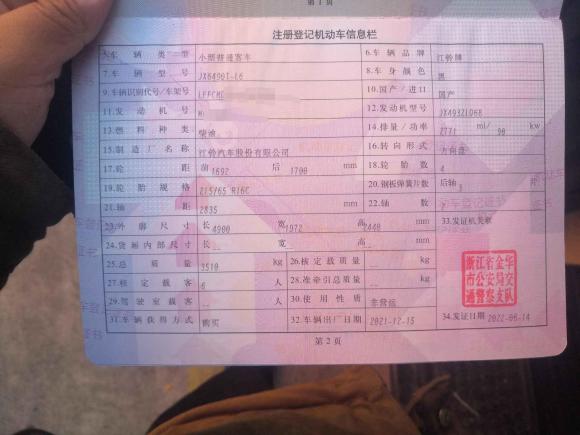 第1页
注册登记机动车信息栏
5.车辆类型 小型普通客车 6.车辆品牌 江铃牌
7.车辆型号 JX6490T-L6 8.车身颜色 黑
9.车辆识别代号/车架号 LEFCMC 10.国产/进口 国产
11.发动机号 12.发动机型号 JX493ZLQ6B
13.燃料种类 柴油 14.排量/功率 2771 ml/ 90 kw
15.制造厂名称 江铃汽车股份有限公司 16.转向形式 方向盘
17.轮距 前1692 后1700 mm 18.轮胎数 4
19.轮胎规格 215/65 R16C 20.钢板弹簧片数 后轴 片
21.轴距 2835 mm 22.轴数 2
23.外廓尺寸 长 4900 宽 1972 高 2440 mm 33.发证机关章
24.货厢内部尺寸 长 -- 宽 -- 高 -- mm
25.总质量 3510 kg 26.核定载质量 -- kg
27.核定载客 6 人 28.准牵引总质量 -- kg
29.驾驶室载客 -- 人 30.使用性质 非营运
浙江省金华
市公安局交
通警察支队
31.车辆获得方式 购买 32.车辆出厂日期 2021-12-15 34.发证日期 2022-06-14
第2页